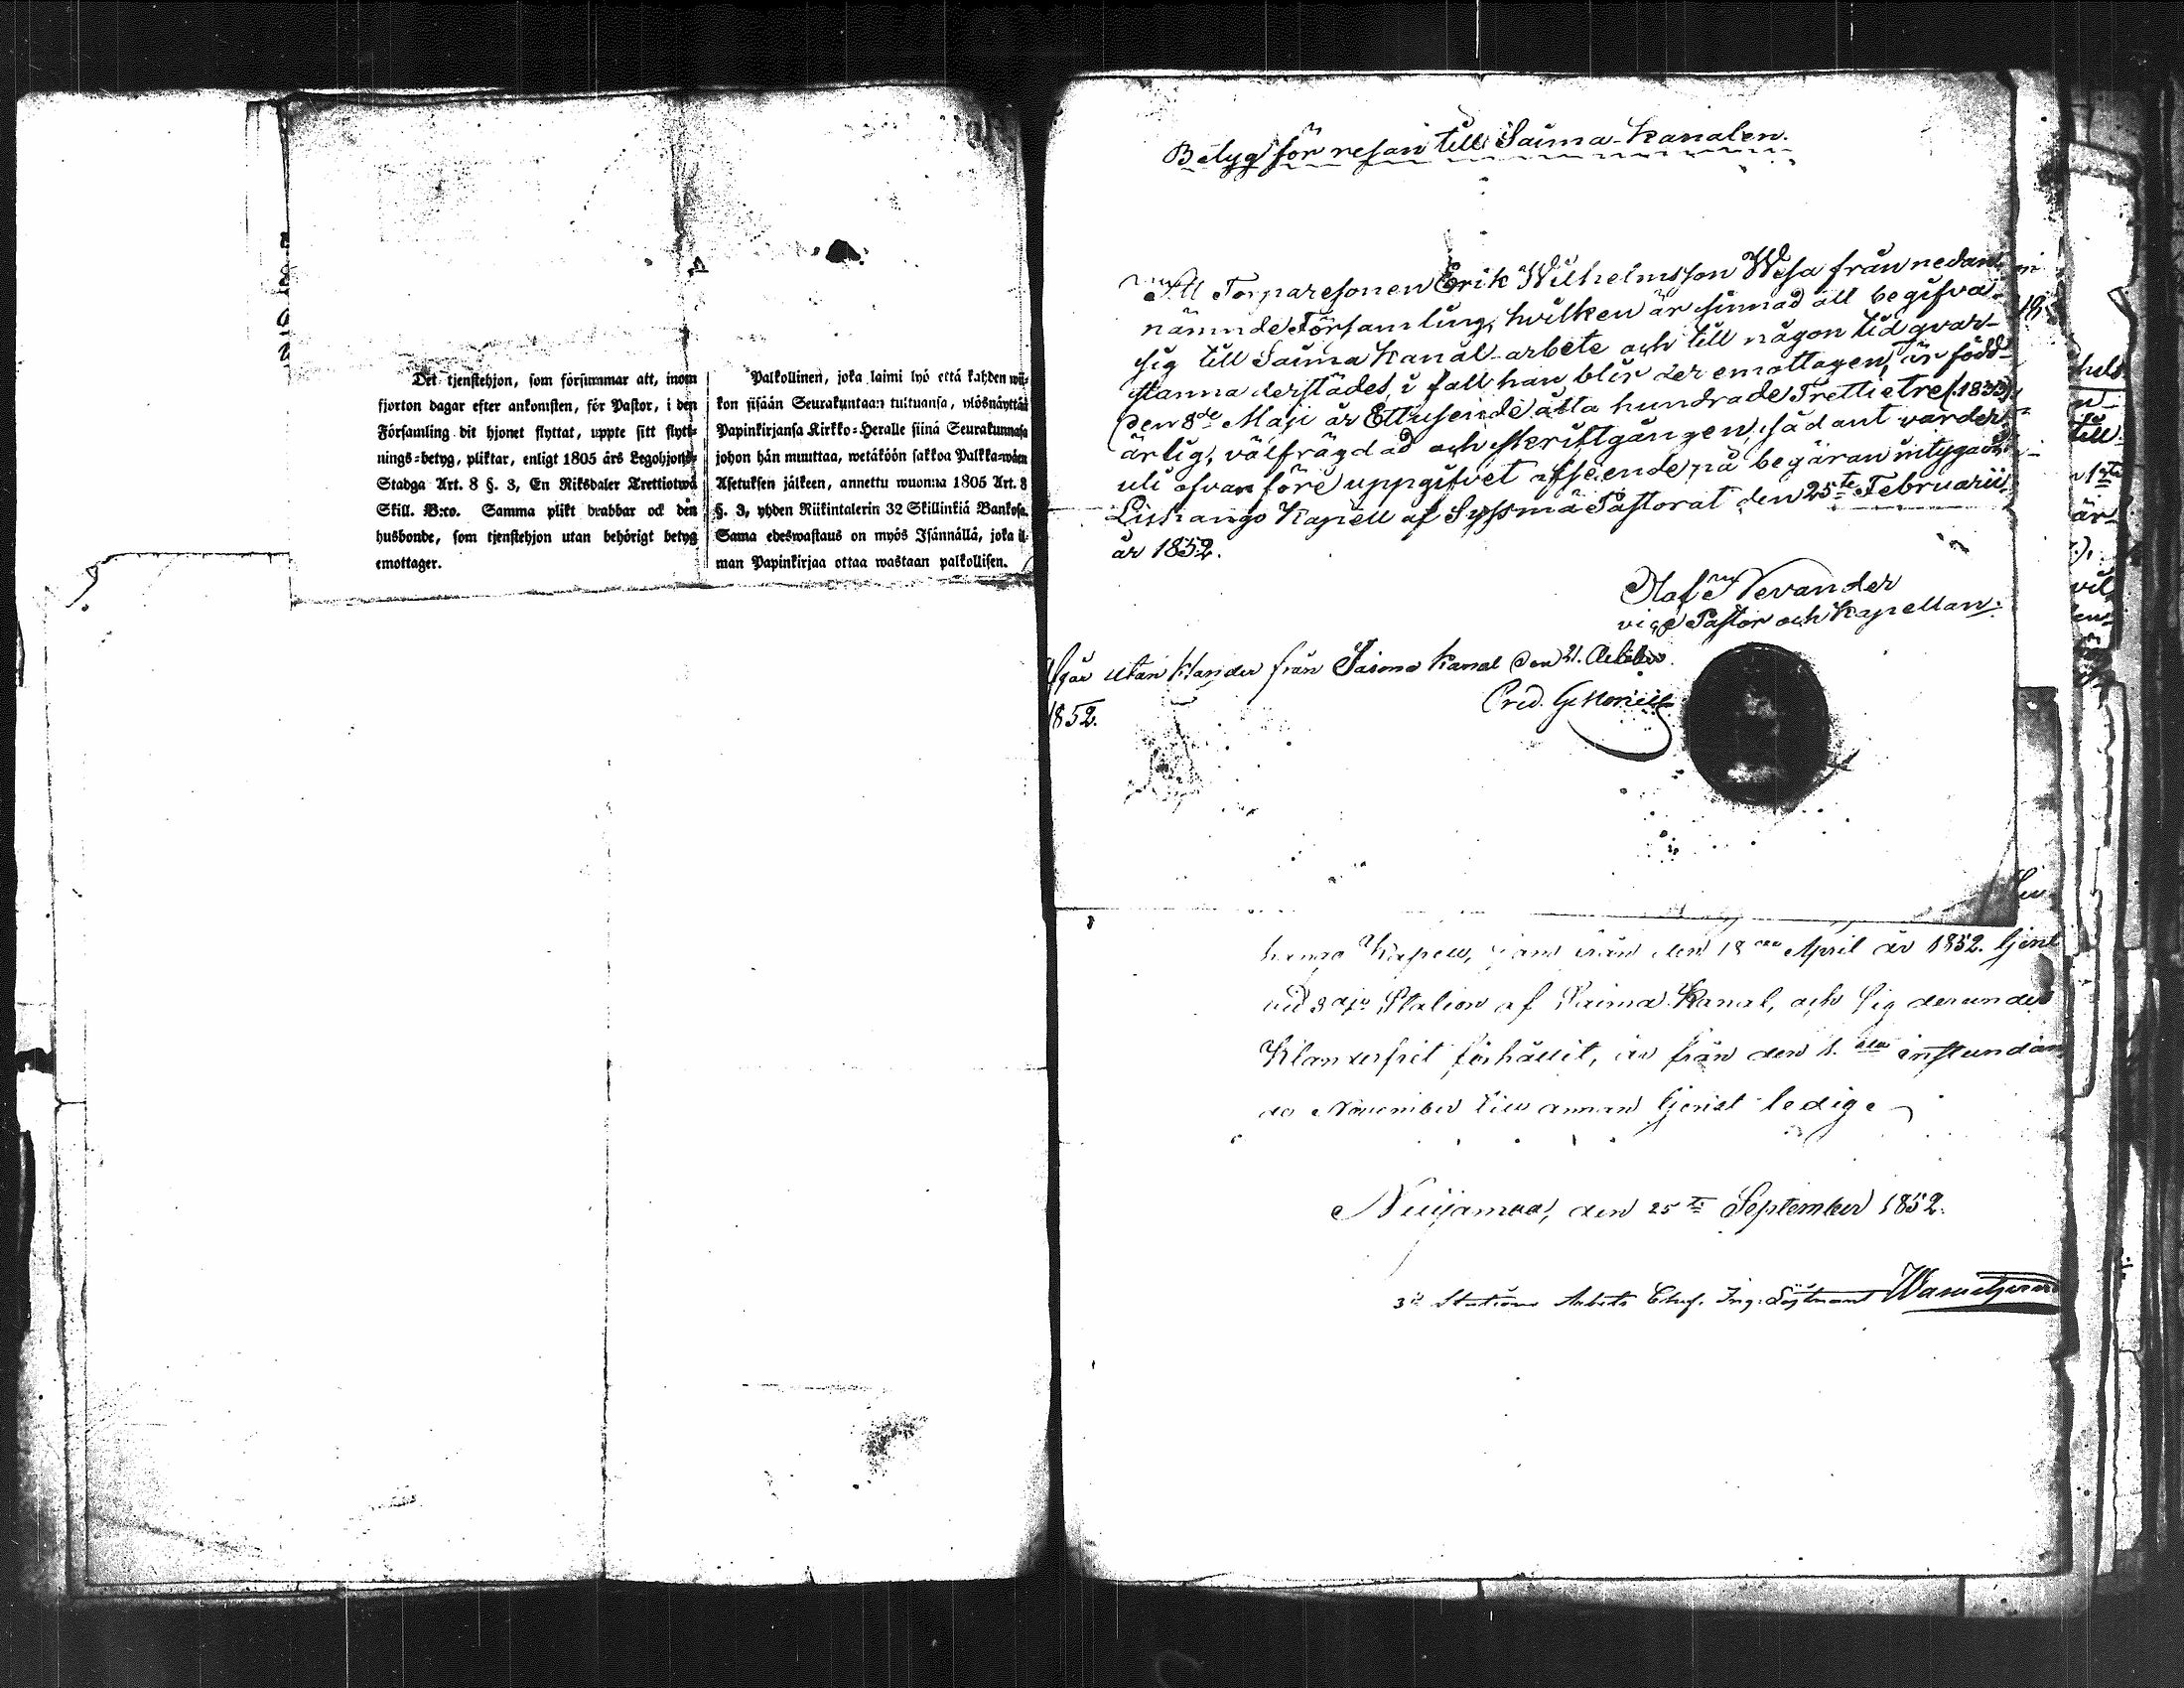 Det tjenstehjon, som försummar att, inom
fjorton dagar efter ankomsten, för Pastor, i den
Församling dit hjonet flyttat, uppte sitt flytt-
nings-betyg, pliktar, enligt 1805 års Legohjons-
Stadga Art. 8 §. 3, En Riksdaler Trettiotwå
Skill. B:co. Samma plikt drabbar ock den
husbonde, som tjenstehjon utan behörigt betyg
emottager.
Palkollinen, joka laimi lyö että kahden wii-
kon sisään Seurakuntaan tultuansa, ylösnäyttää
Papinkirjansa Kirkko-Heralle siinä Seurakunnasa
johon hän muuttaa, wetäköön sakkoa Palkka-wäen
Asetuksen jälkeen, annettu wuonna 1805 Art. 8
§. 3, yhden Riikintalerin 32 Skillinkiä Bankosa.
Sama edeswastaus on myös Isännällä, joka il-
man Papinkirjaa ottaa wastaan palkollisen.
Betyg för resan till Saima-Kanalen.
Att Torparesonen Erik Wilhelmsson Wesa från nedan-
nämnde Församling, hvilken är sinnad att begifva
sig till Saima Kanal-arbete och till någon tid qvar-
stanna derstädes, i fall han blir der emottagen, är född
den 8de Maji år Ettusende åtta hundrade Trettietre (1833),
ärlig, välfrägdad och skriftgången, sådant varder
uti ofvanföre uppgifvet afseende, på begäran intygadt.
Lishango Kapell af Syssmä Pastorat den 25te Februarii
år 1852.
Olof Nevander
vice Pastor och Kapellan.
Afgår utan klander från Saima Kanal den 21. October
1852.
Kapell, från den 18 April år 1852. tjent
vid 3dje Station af Saima Kanal, och sig derunder
Klanderfrit förhållit, är från den 1.sta instundan
de November till annan tjenst ledig.
Nuijamaa, den 25te September 1852.
3ie Stations Arbets Chef. Ing. Löjtnant